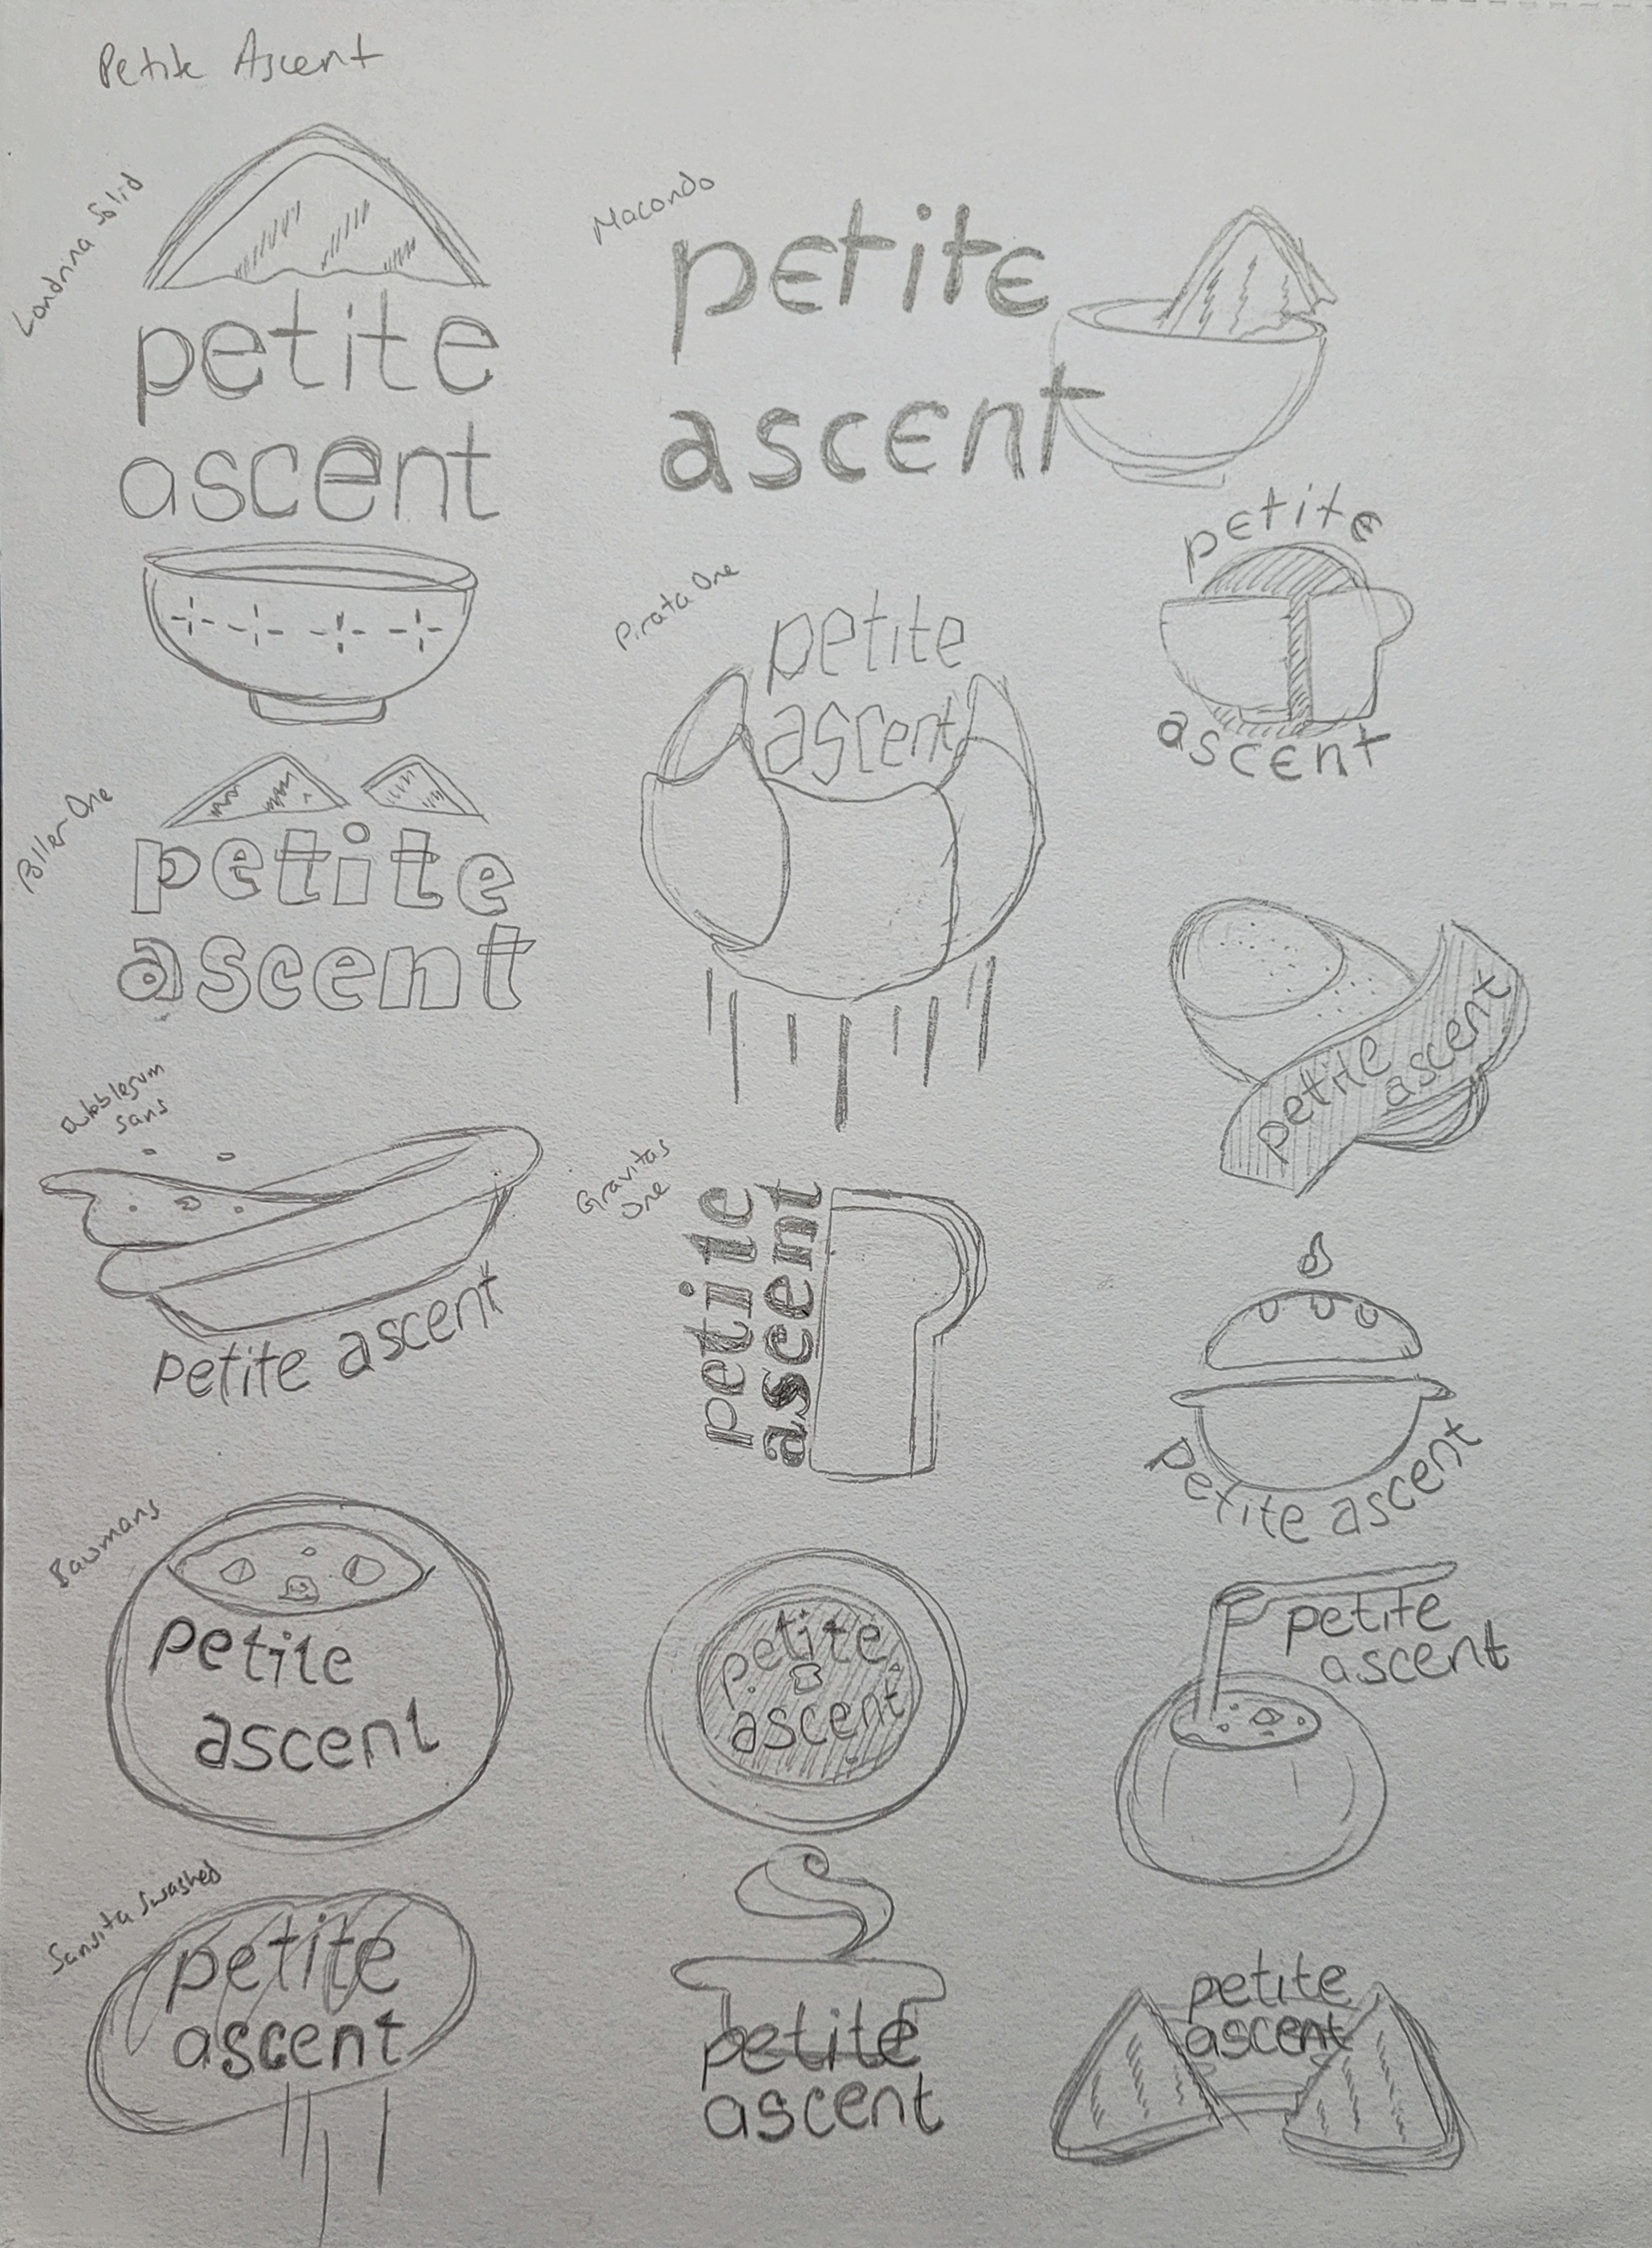 Petite Ascent
Londrina Solid
petite
ascent
Macondo
petite
ascent
petite
ascent
Pirata One
petite
ascent
Poller One
petite
ascent
petite
ascent
Bubblegum
Sans
petite ascent
Gravitas
One
petite
ascent
petite ascent
Bawmans
petite
ascent
petite
ascent
petite
ascent
Sansita Swashed
petite
ascent
petite
ascent
petite
ascent